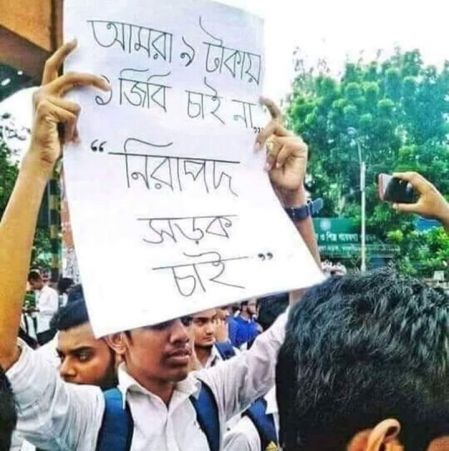 আমরা ৯ টাকায়
১ জিবি চাই না...
“নিরাপদ
সড়ক
চাই”